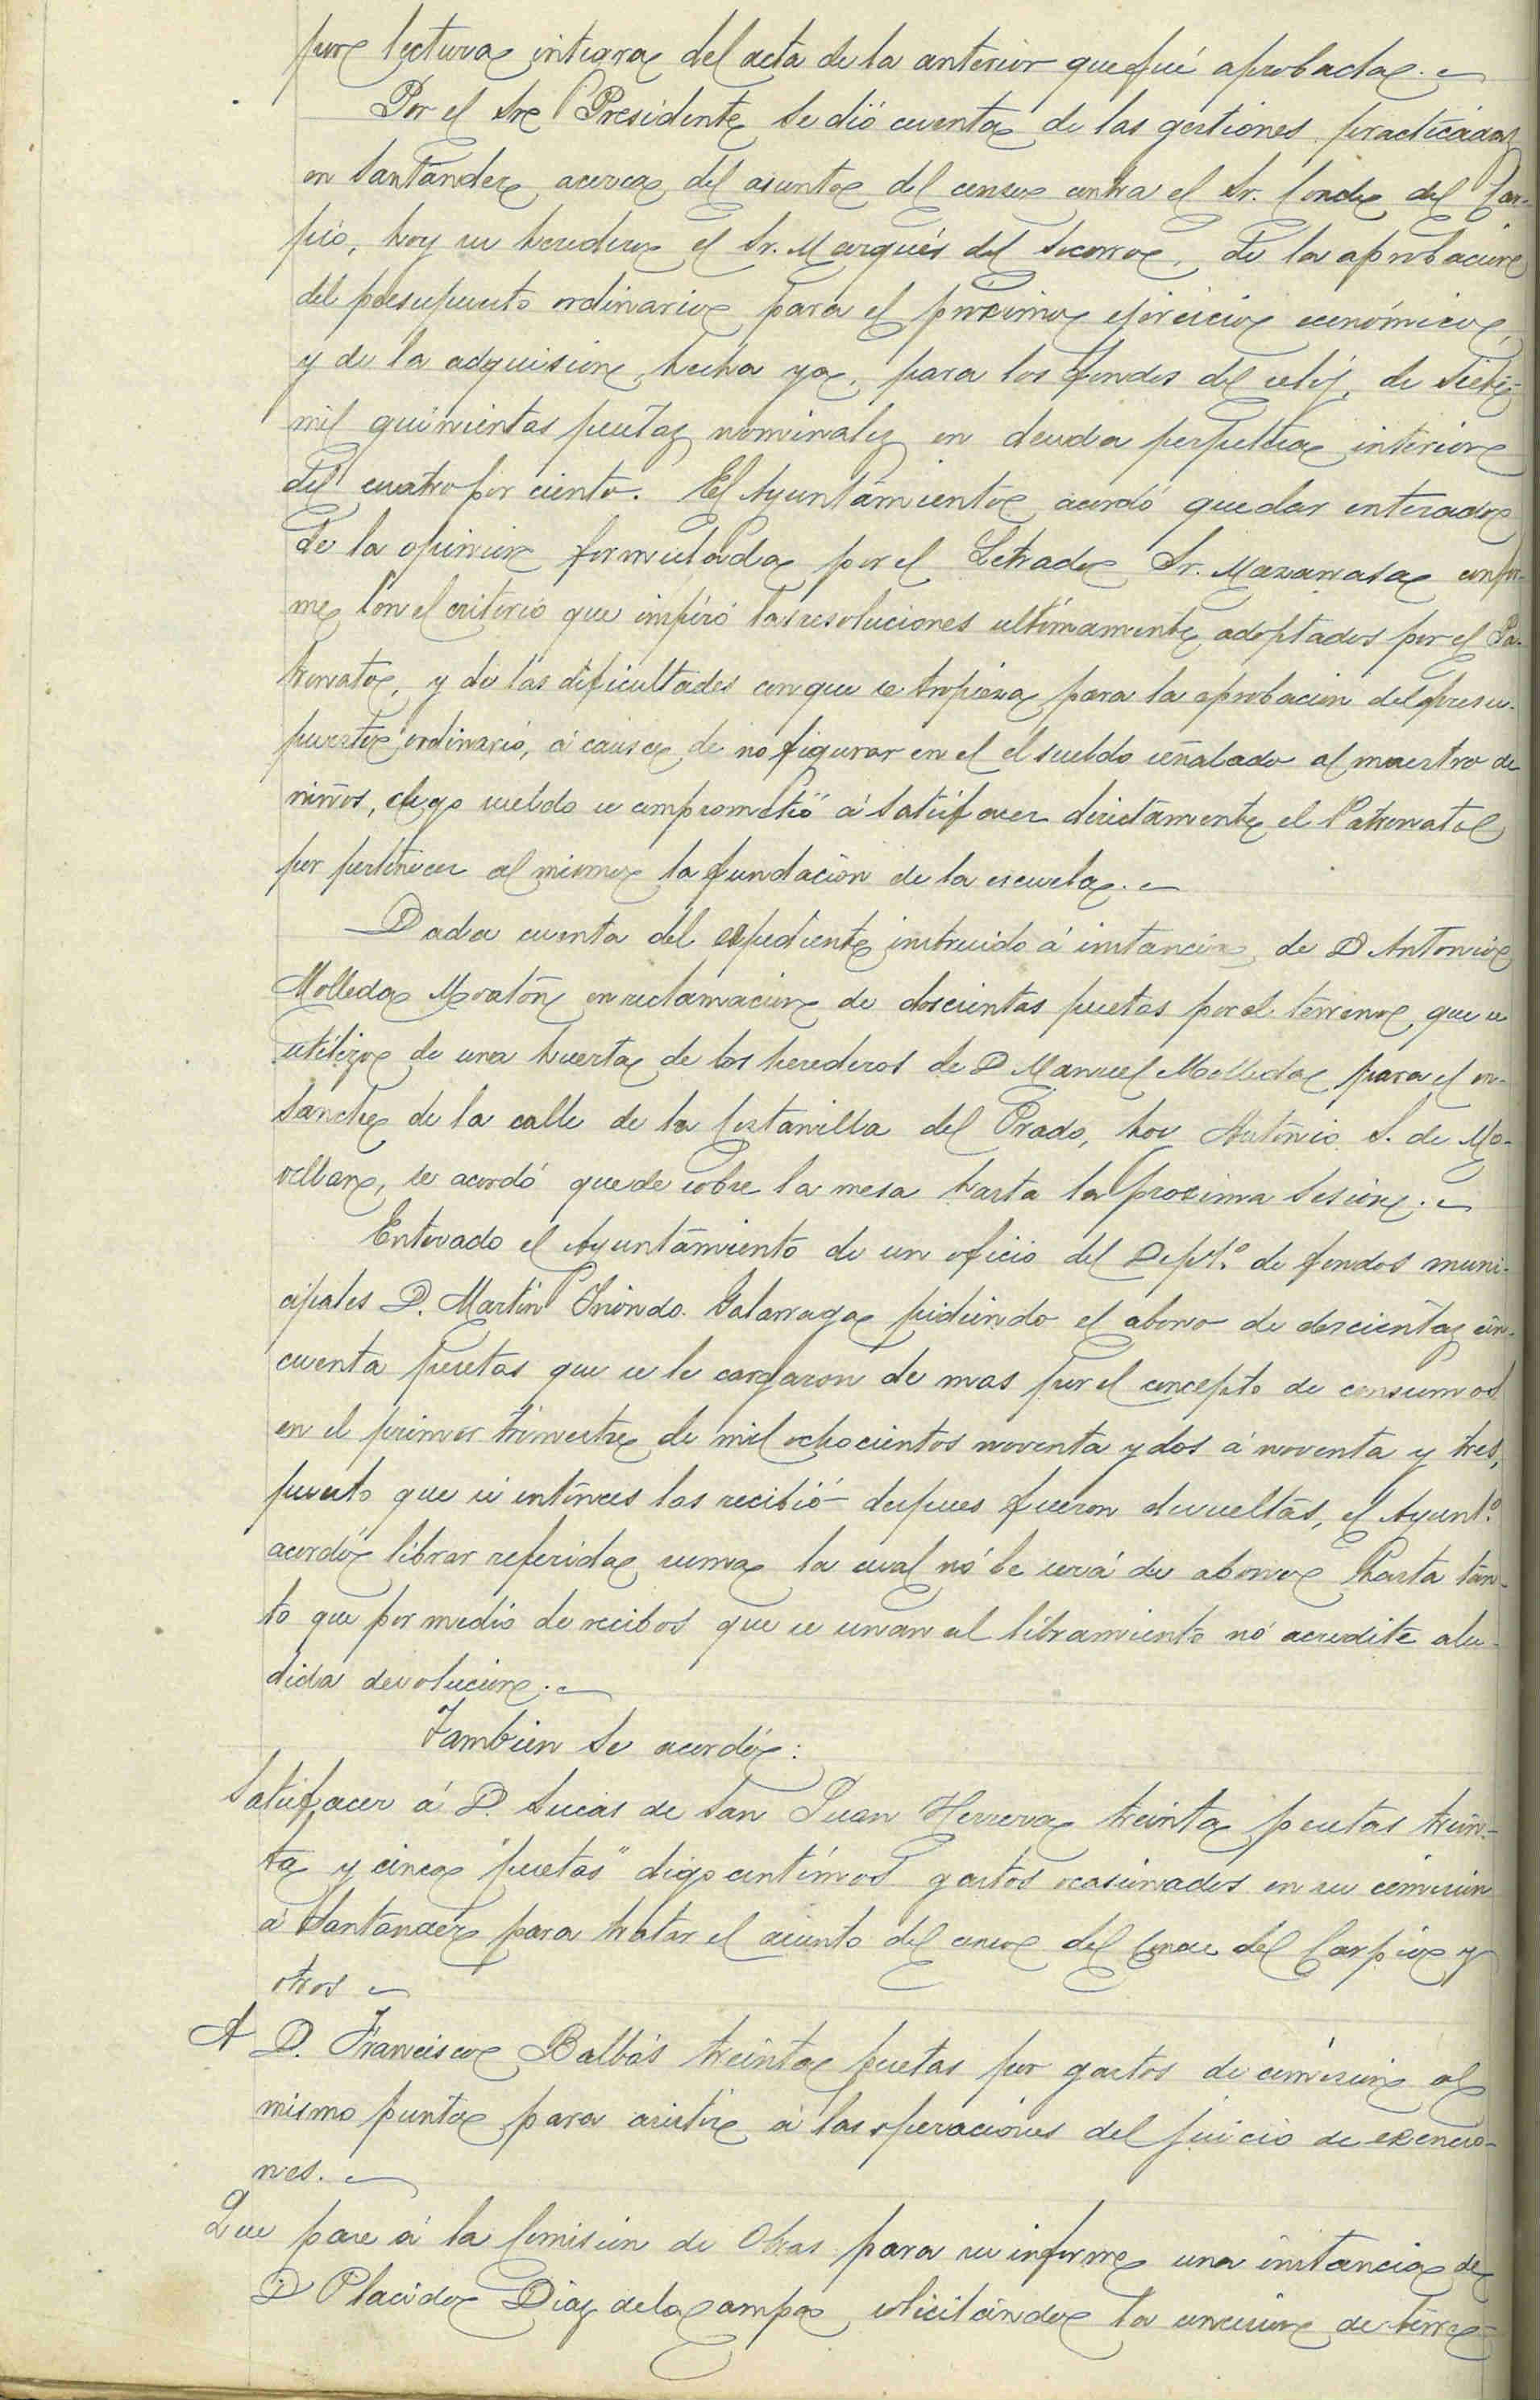 por lectura integra del acta de la anterior que fué aprobada.
Por el Sr Presidente se dió cuenta de las gestiones practicadas
en Santander acerca del asunto del censo contra el Sr. Conde del Car-
pio, hoy su heredero el Sr. Marqués del Socorro, de la aprobacion
del presupuesto ordinario para el próximo ejercicio económico,
y de la adquision hecha ya, para los fondos del reloj, de siete
mil quinientas pesetas nominales en deuda perpetua interior
del cuatro por ciento. El Ayuntamiento acordó quedar enterado
de la opinion formulada por el Letrado Sr. Mazarrasa confor-
me con el criterio que inspiró las resoluciones ultimamente adoptados por el Pa-
tronato, y de las dificultades con que se tropieza para la aprobacion del presu-
puesto ordinario, á causa de no figurar en el el sueldo señalado al maestro de
niños, cuyo sueldo se comprometió á satisfacer directamente el Patronato
por pertenecer al mismo la fundacion de la escuela.
Dada cuenta del expediente instruido á instancia de D Antonio
Molleda Moratón en reclamacion de doscientas pesetas por el terreno que se
utilizo de una huerta de los herederos de D Manuel Molleda para el en-
sanche de la calle de la Costanilla del Prado, hoy Antonio S. de Mo-
vellan, se acordó quede sobre la mesa hasta la proxima sesion.
Enterado el Ayuntamiento de un oficio del Deptº. de fondos muni-
cipales D. Martin Iriondo Galarraga pidiendo el abono de doscientas cin-
cuenta pesetas que se le cargaron de mas por el concepto de consumos
en el primer trimestre de mil ochocientos noventa y dos á noventa y tres,
puesto que si entónces las recibió despues fueron devueltas, el Ayuntº.
acordó librar referida suma la cual nó le será de abono hasta tan-
to que por medio de recibos que se unan al libramiento nó acredite alu-
dida devolucion.
Tambien se acordó:
Satisfacer á D. Lucas de San Juan Herrera treinta pesetas trein-
ta y cinco "pesetas" digo centímos gastos ocasionados en su comision
á Santander para tratar el asunto del censo del Conde del Carpio y
otros
A D. Francisco Balbás treinta pesetas por gastos de comision al
mismo punto para asistir á las operaciones del juicio de exencio-
nes.
Que pase á la Comision de Obras para su informe una instancia de
D Placido Diaz de la Campa solicitando la concesion de terre-